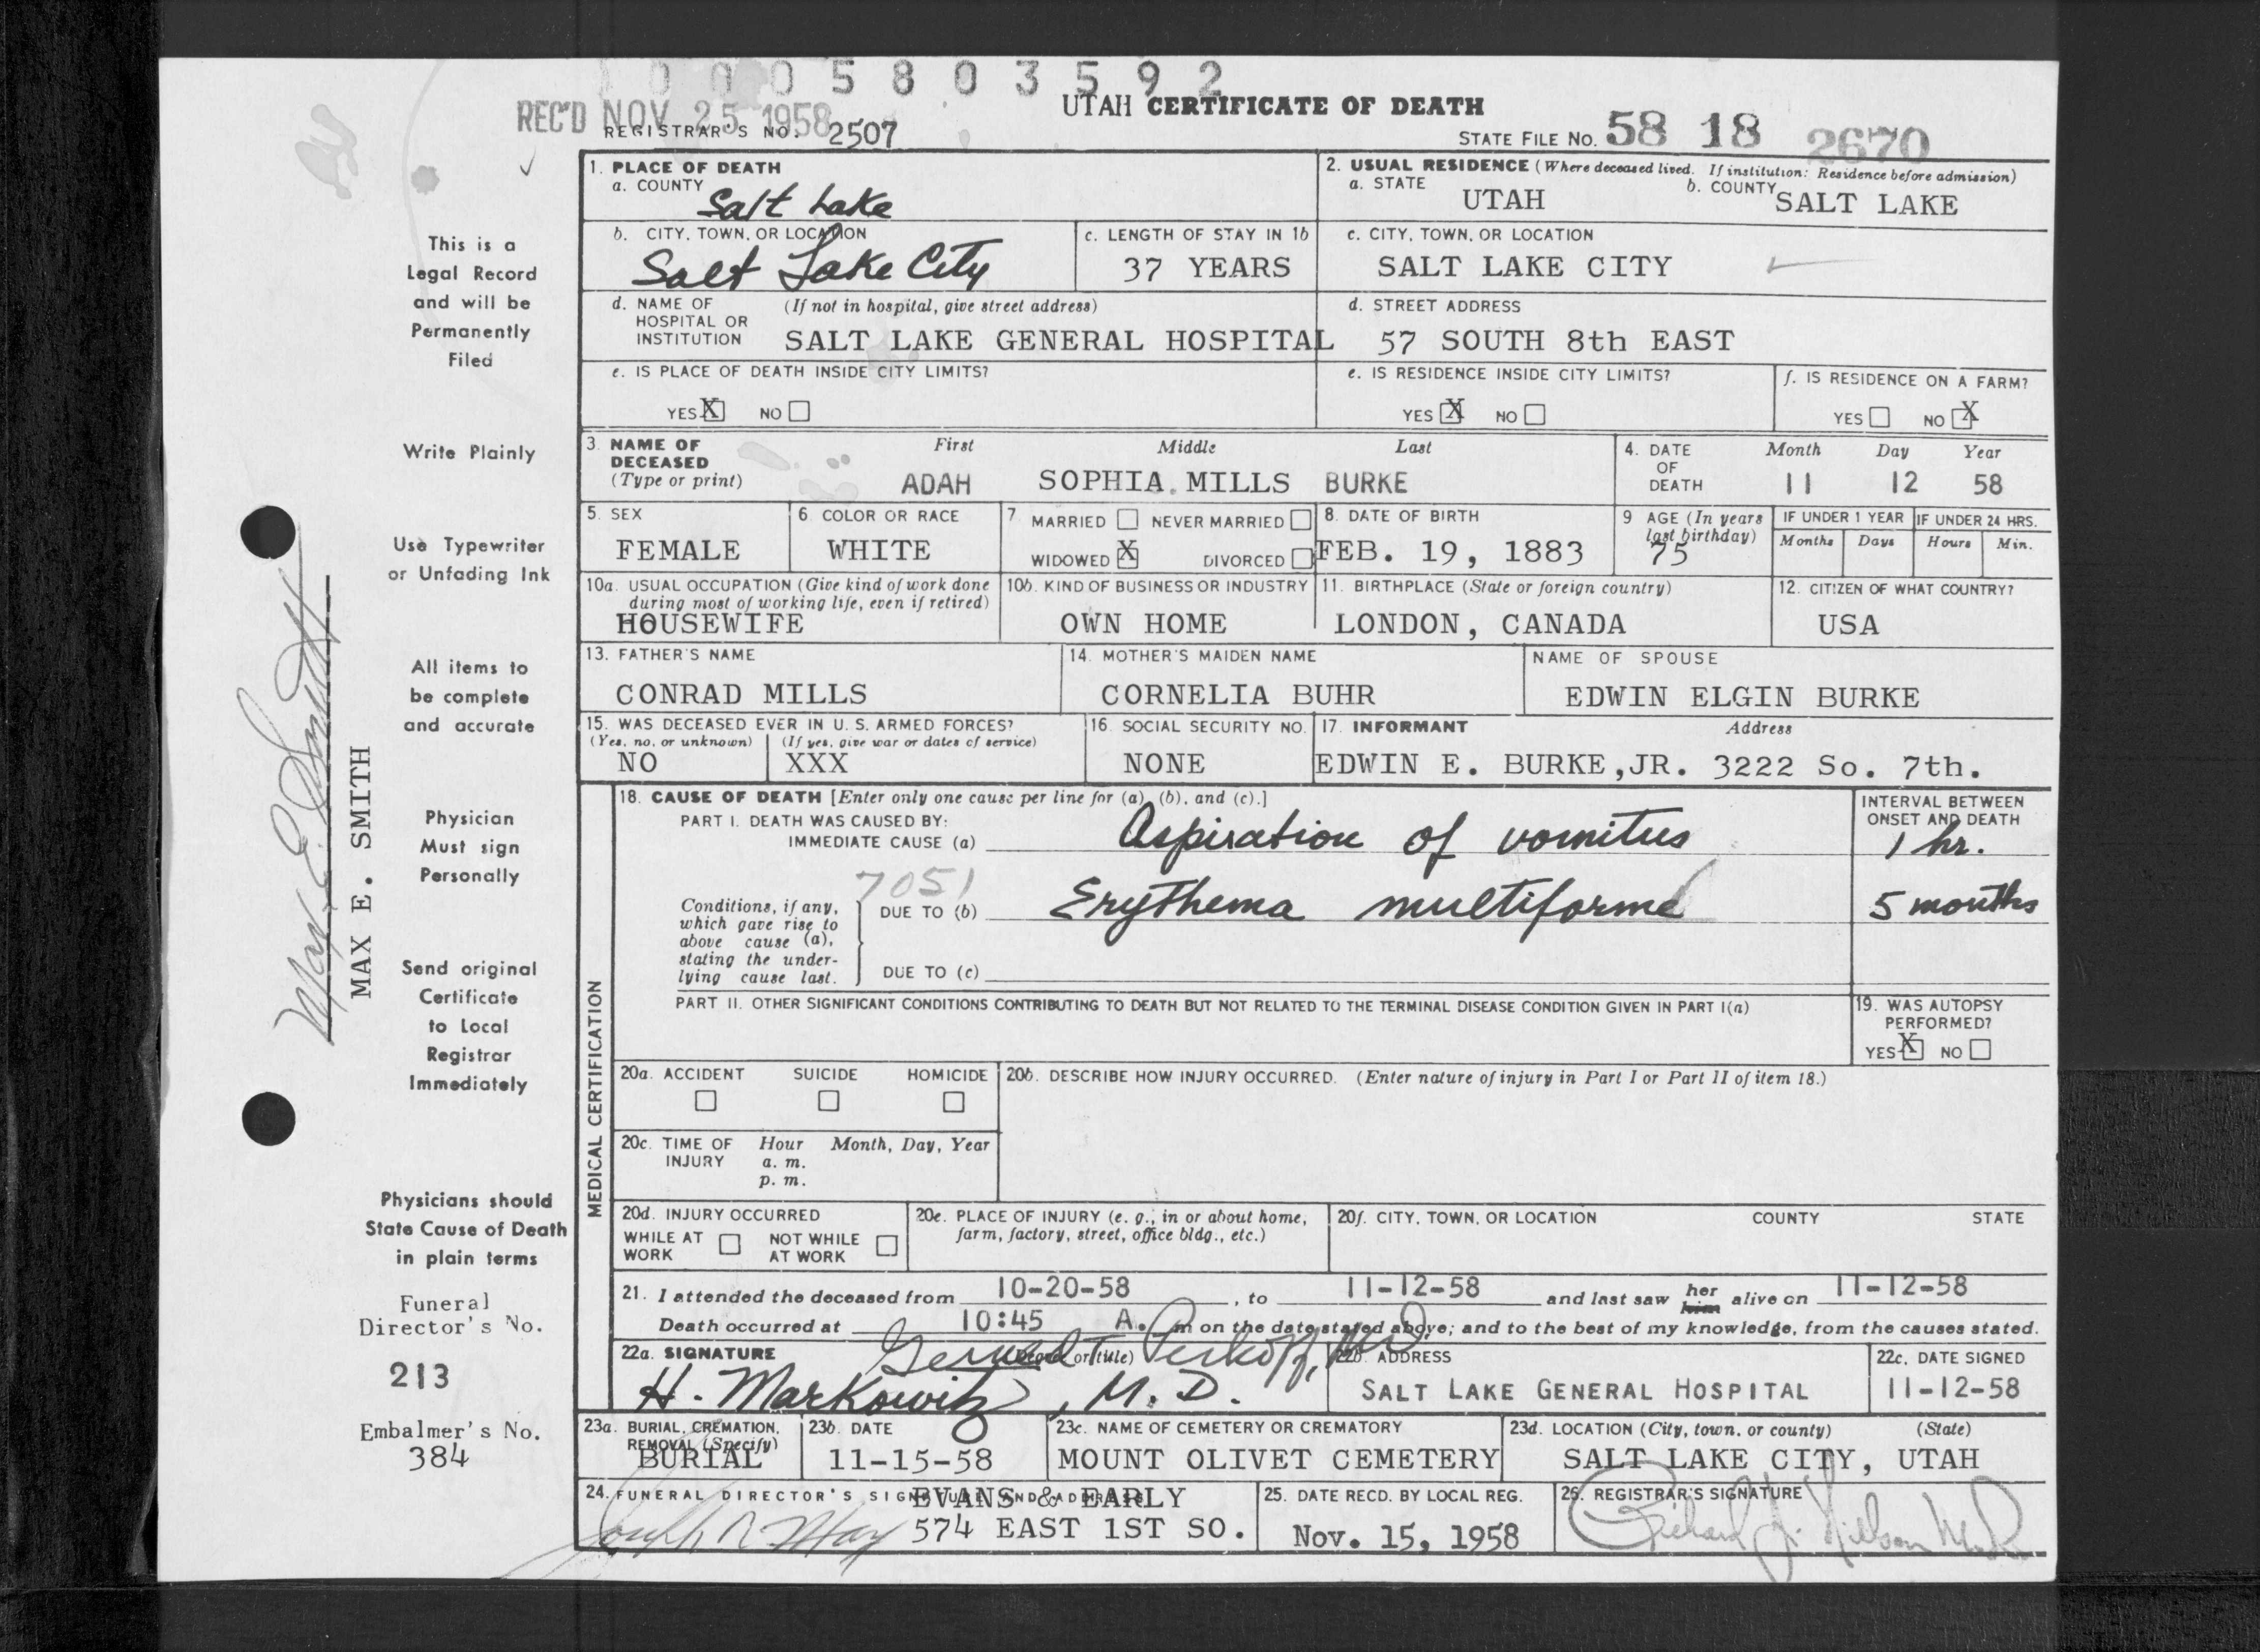 0 0 0 5 8 0 3 5 9 2
REC'D NOV 25 1958
UTAH CERTIFICATE OF DEATH
REGISTRAR'S NO. 2507
STATE FILE NO. 58 18 2670
1. PLACE OF DEATH
a. COUNTY
Salt Lake
2. USUAL RESIDENCE (Where deceased lived. If institution: Residence before admission)
a. STATE UTAH b. COUNTY SALT LAKE
b. CITY, TOWN, OR LOCATION
Salt Lake City
c. LENGTH OF STAY IN 1b
37 YEARS
c. CITY, TOWN, OR LOCATION
SALT LAKE CITY
d. NAME OF HOSPITAL OR INSTITUTION (If not in hospital, give street address)
SALT LAKE GENERAL HOSPITAL
d. STREET ADDRESS
57 SOUTH 8th EAST
e. IS PLACE OF DEATH INSIDE CITY LIMITS?
YES X NO
e. IS RESIDENCE INSIDE CITY LIMITS?
YES X NO
f. IS RESIDENCE ON A FARM?
YES NO X
3. NAME OF DECEASED (Type or print)
First Middle Last
ADAH SOPHIA MILLS BURKE
4. DATE OF DEATH
Month Day Year
11 12 58
5. SEX
FEMALE
6. COLOR OR RACE
WHITE
7 MARRIED NEVER MARRIED
WIDOWED X DIVORCED
8. DATE OF BIRTH
FEB. 19, 1883
9 AGE (In years last birthday)
75
IF UNDER 1 YEAR
Months Days
IF UNDER 24 HRS.
Hours Min.
10a. USUAL OCCUPATION (Give kind of work done during most of working life, even if retired)
HOUSEWIFE
10b. KIND OF BUSINESS OR INDUSTRY
OWN HOME
11. BIRTHPLACE (State or foreign country)
LONDON, CANADA
12. CITIZEN OF WHAT COUNTRY?
USA
13. FATHER'S NAME
CONRAD MILLS
14. MOTHER'S MAIDEN NAME
CORNELIA BUHR
NAME OF SPOUSE
EDWIN ELGIN BURKE
15. WAS DECEASED EVER IN U. S. ARMED FORCES?
(Yes, no, or unknown) (If yes, give war or dates of service)
NO XXX
16. SOCIAL SECURITY NO.
NONE
17. INFORMANT Address
EDWIN E. BURKE, JR. 3222 So. 7th.
MEDICAL CERTIFICATION
18. CAUSE OF DEATH [Enter only one cause per line for (a), (b), and (c).]
PART I. DEATH WAS CAUSED BY:
IMMEDIATE CAUSE (a) Aspiration of vomitus
INTERVAL BETWEEN ONSET AND DEATH
1 hr.
7051
Conditions, if any, which gave rise to above cause (a), stating the underlying cause last.
DUE TO (b) Erythema multiforme
5 months
DUE TO (c)
PART II. OTHER SIGNIFICANT CONDITIONS CONTRIBUTING TO DEATH BUT NOT RELATED TO THE TERMINAL DISEASE CONDITION GIVEN IN PART I(a)
19. WAS AUTOPSY PERFORMED?
YES X NO
20a. ACCIDENT SUICIDE HOMICIDE
20b. DESCRIBE HOW INJURY OCCURRED. (Enter nature of injury in Part I or Part II of item 18.)
20c. TIME OF INJURY
Hour Month, Day, Year
a. m.
p. m.
20d. INJURY OCCURRED
WHILE AT WORK NOT WHILE AT WORK
20e. PLACE OF INJURY (e. g., in or about home, farm, factory, street, office bldg., etc.)
20f. CITY, TOWN, OR LOCATION COUNTY STATE
21. I attended the deceased from 10-20-58, to 11-12-58 and last saw her him alive on 11-12-58
Death occurred at 10:45 A. m on the date stated above; and to the best of my knowledge, from the causes stated.
22a. SIGNATURE (Degree or title)
Perkoff, MD
H. Markowitz, M. D.
22b. ADDRESS
SALT LAKE GENERAL HOSPITAL
22c. DATE SIGNED
11-12-58
23a. BURIAL, CREMATION, REMOVAL (Specify)
BURIAL
23b. DATE
11-15-58
23c. NAME OF CEMETERY OR CREMATORY
MOUNT OLIVET CEMETERY
23d. LOCATION (City, town, or county) (State)
SALT LAKE CITY, UTAH
24. FUNERAL DIRECTOR'S SIGNATURE AND ADDRESS
EVANS & EARLY
574 EAST 1ST SO.
25. DATE RECD. BY LOCAL REG.
Nov. 15, 1958
26. REGISTRAR'S SIGNATURE
This is a
Legal Record
and will be
Permanently
Filed
Write Plainly
Use Typewriter
or Unfading Ink
All items to
be complete
and accurate
Physician
Must sign
Personally
Send original
Certificate
to Local
Registrar
Immediately
Physicians should
State Cause of Death
in plain terms
Funeral
Director's No.
213
Embalmer's No.
384
Max E. Smith
MAX E. SMITH